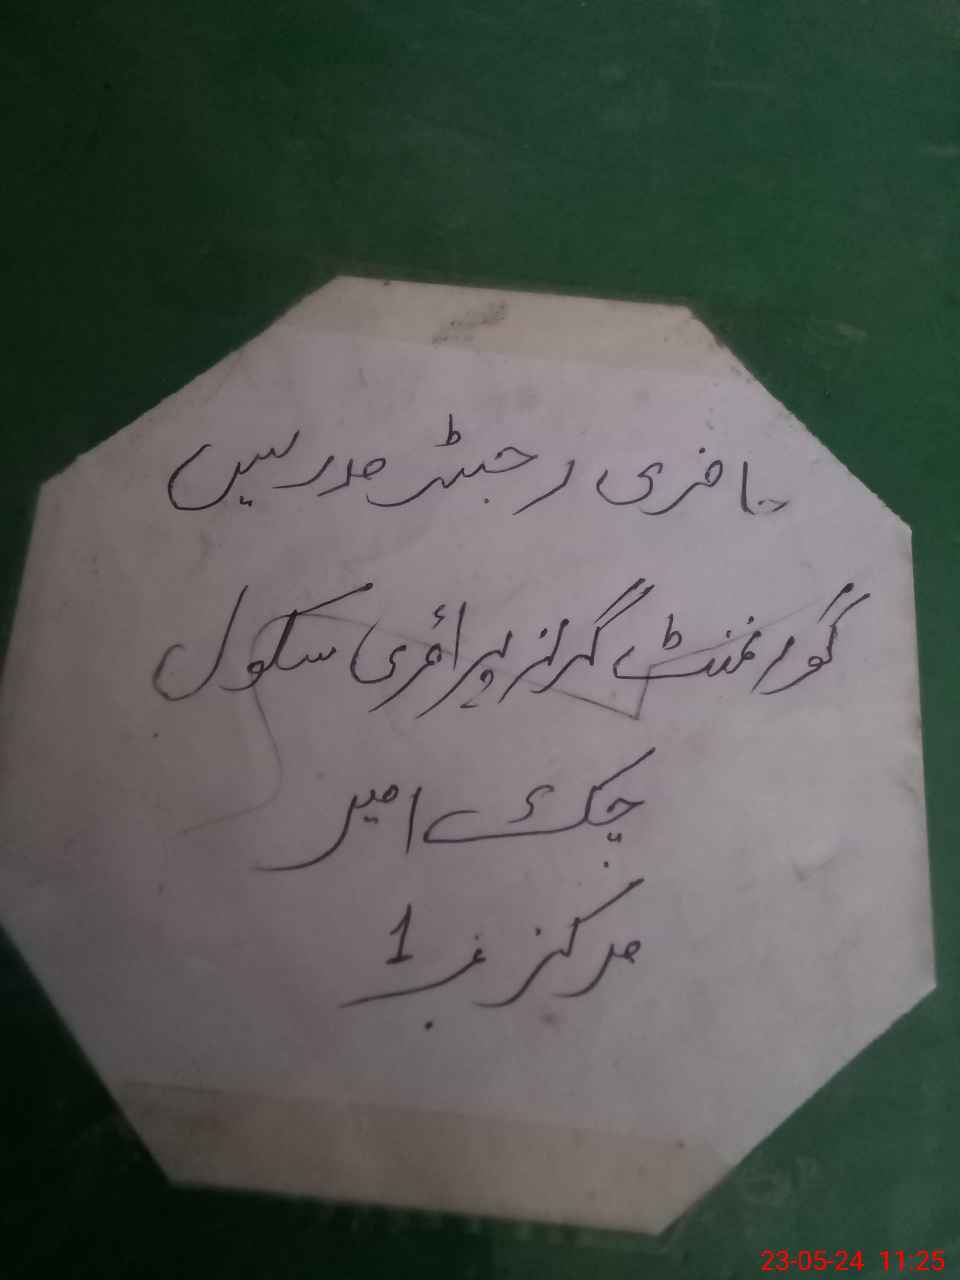 حاضری رجسٹر مدرسین
گورنمنٹ گرلز پرائمری سکول
چک امیر
مرکز نمبر 1
23-05-24 11:25